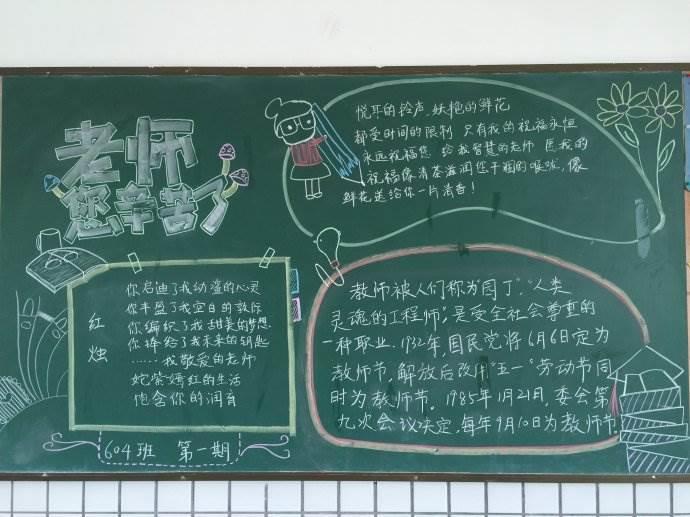 老师
您辛苦了
悦耳的铃声,妖艳的鲜花
都受时间的限制 只有我的祝福永恒
永远祝福您 给我智慧的老师 愿我的
祝福像清茶滋润您干涸的喉咙,像
鲜花送给你一片清香!
红烛
你启迪了我幼稚的心灵
你丰盈了我空白的
你编织了我甜美的梦想
你捧给了我未来的钥匙
……我敬爱的老师
姹紫嫣红的生活
饱含你的润育
教师被人们称为"园丁"、"人类
灵魂的工程师",是受全社会尊重的
一种职业。1932年,国民党将6月6日定为
教师节,解放后改用"五一"劳动节同
时为教师节。1985年1月21日,委会第
九次会议决定,每年9月10日为教师节
604班 第一期